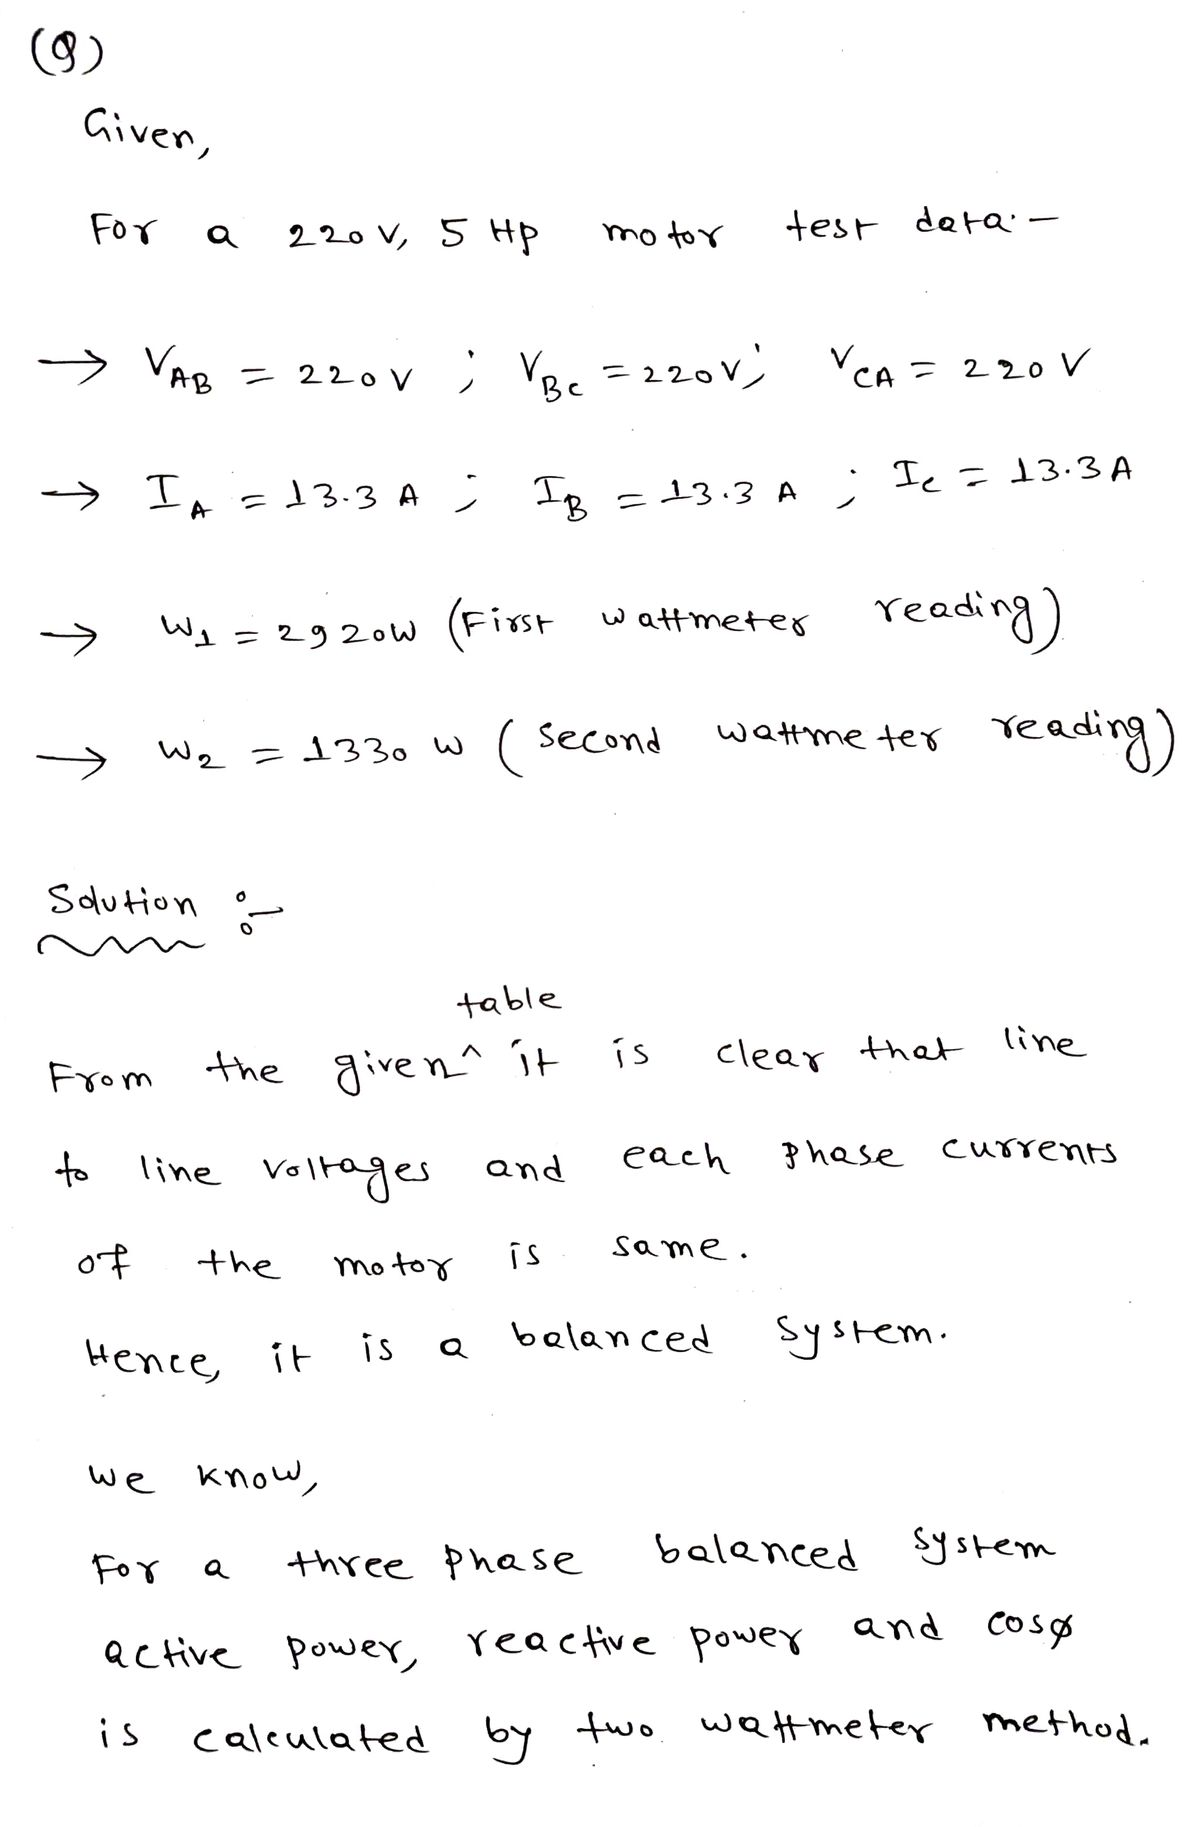 (Q)
Given,
For a 220 V, 5 Hp motor test data:-
→ V_AB = 220 V ; V_BC = 220V; V_CA = 220 V
→ I_A = 13.3 A ; I_B = 13.3 A ; I_C = 13.3 A
→ W_1 = 2920W (First wattmeter reading)
→ W_2 = 1330 W (Second wattmeter reading)
Solution :-
table
From the given ^ it is clear that line
to line voltages and each phase currents
of the motor is same.
Hence, it is a balanced system.
we know,
For a three phase balanced system
active power, reactive power and cosø
is calculated by two wattmeter method.